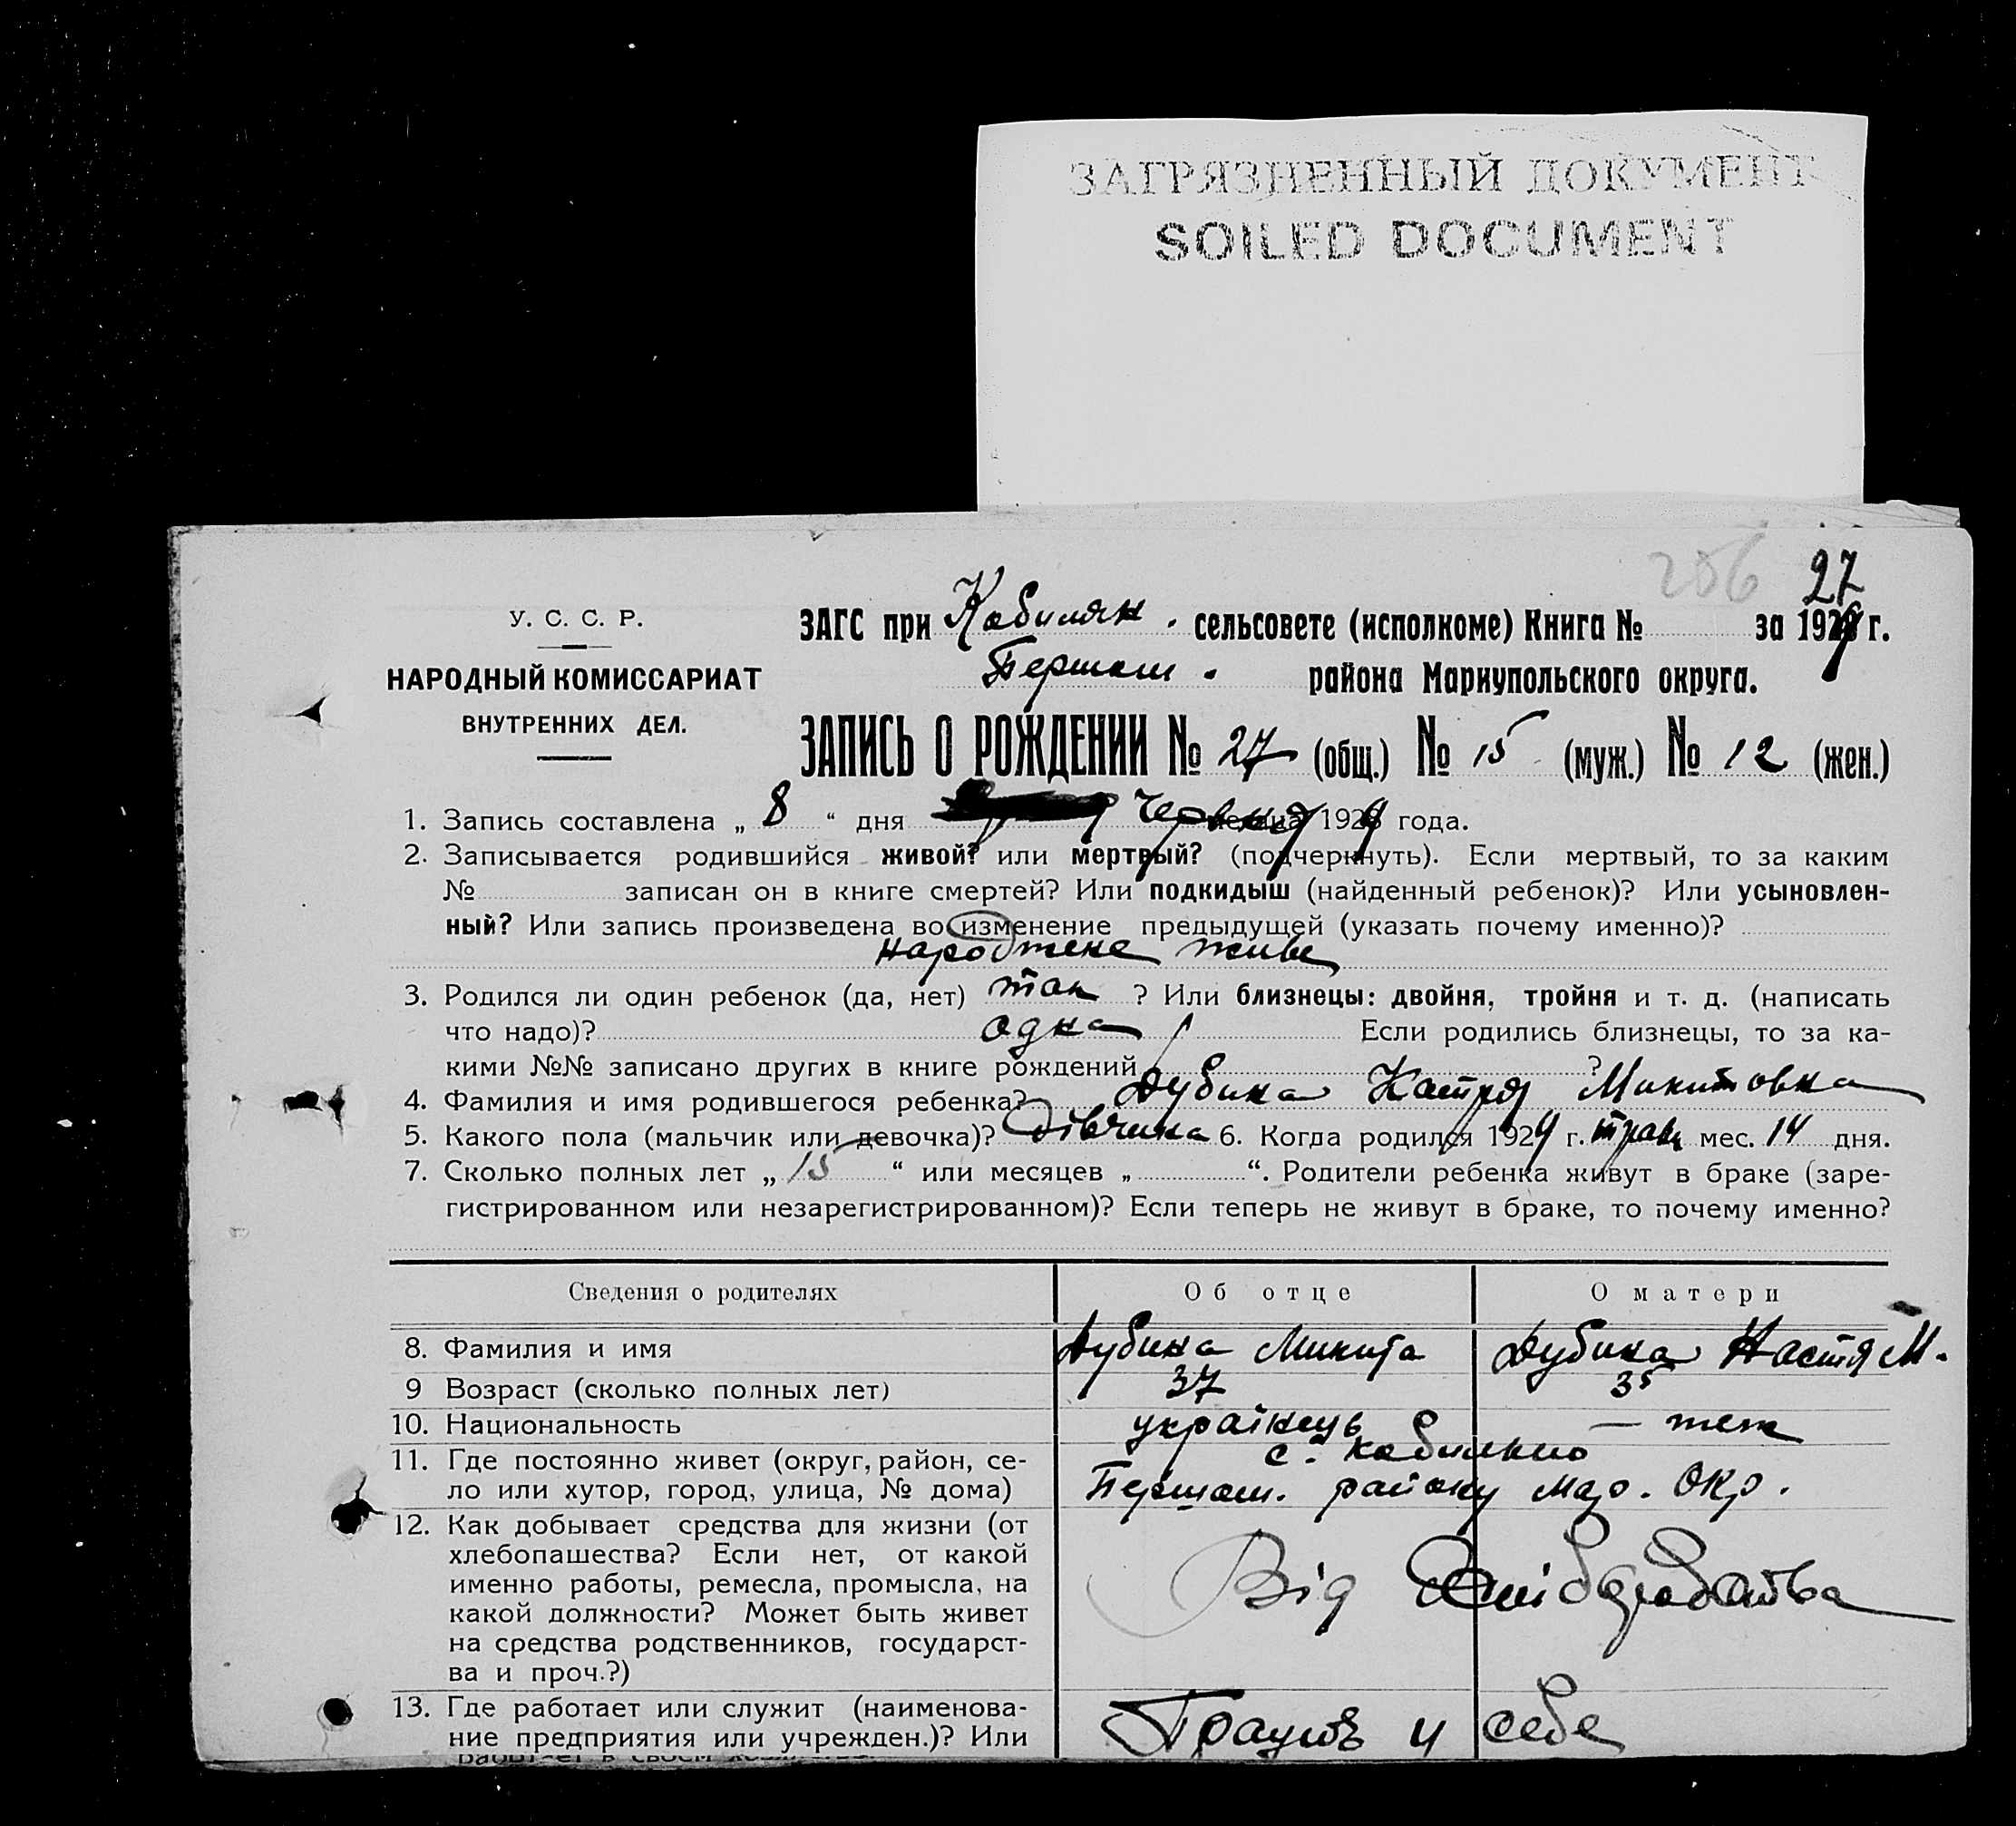 ЗАГРЯЗНЕННЫЙ ДОКУМЕНТ
SOILED DOCUMENT
256 27
У. С. С. Р.
НАРОДНЫЙ КОМИССАРИАТ
ВНУТРЕННИХ ДЕЛ.
ЗАГС при Кобиляк. сельсовете (исполкоме) Книга № за 1929 г.
Першот. района Мариупольского округа.
ЗАПИСЬ О РОЖДЕНИИ № 27 (общ.) № 15 (муж.) № 12 (жен.)
1. Запись составлена „ 8 “ дня Червня месяца 1929 года.
2. Записывается родившийся живой? или мертвый? (подчеркнуть). Если мертвый, то за каким
№ записан он в книге смертей? Или подкидыш (найденный ребенок)? Или усыновлен-
ный? Или запись произведена во изменение предыдущей (указать почему именно)?
народжене живе
3. Родился ли один ребенок (да, нет) так ? Или близнецы: двойня, тройня и т. д. (написать
что надо)? одна Если родились близнецы, то за ка-
кими №№ записано других в книге рождений ?
4. Фамилия и имя родившегося ребенка? Дубина Катря Микитовна
5. Какого пола (мальчик или девочка)? дівчина 6. Когда родился 1929 г. травн мес. 14 дня.
7. Сколько полных лет „ 15 “ или месяцев „ “. Родители ребенка живут в браке (заре-
гистрированном или незарегистрированном)? Если теперь не живут в браке, то почему именно?
Сведения о родителях Об отце О матери
8. Фамилия и имя Дубина Микита Дубина Настя М.
9 Возраст (сколько полных лет) 37 35
10. Национальность українець — теж
11. Где постоянно живет (округ, район, се-
ло или хутор, город, улица, № дома)
с. Кобильно
Першот. району Мар. Окр.
12. Как добывает средства для жизни (от
хлебопашества? Если нет, от какой
именно работы, ремесла, промысла, на
какой должности? Может быть живет
на средства родственников, государст-
ва и проч.?)
Від хлібаробства
13. Где работает или служит (наименова-
ние предприятия или учрежден.)? Или
работает в своем
Працює у себе